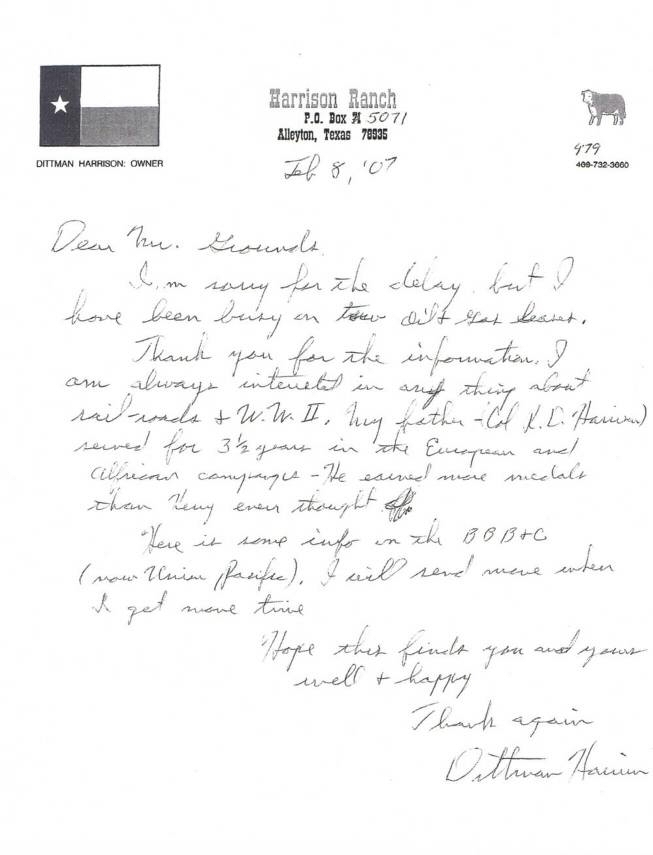 Harrison Ranch
P.O. Box 71 5071
Alleyton, Texas 78935
DITTMAN HARRISON: OWNER
479
409-732-3660
Feb 8, '07
Dear Mr. Grounds.
I'm sorry for the delay, but I
have been busy on two oil & gas leases.
Thank you for the information. I
am always interested in any thing about
rail-roads & W.W.II. My father - (Col K.D. Harrison)
served for 3½ years in the European and
African campaigns - He earned more medals
than ever thought of
Here is some info on the BBB+C
(now Union Pacific). I will send more when
I get more time
Hope this finds you and yours
well + happy
Thank again
Dittman Harrison